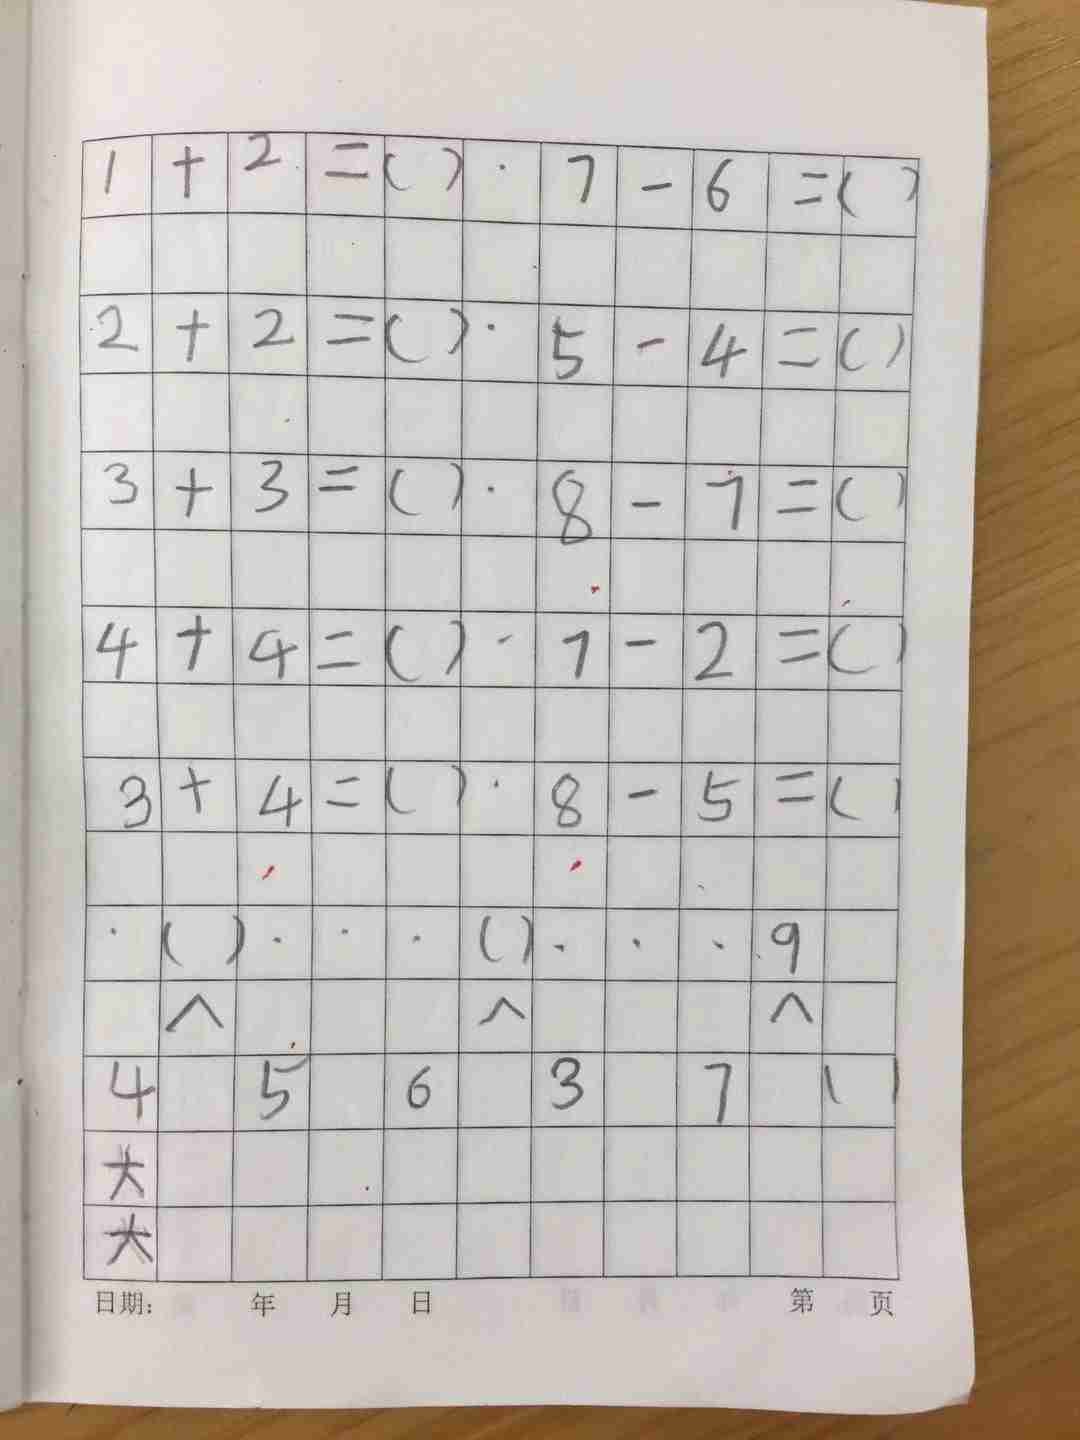 1 + 2 = ( ) · 7 - 6 = ( )
2 + 2 = ( ) · 5 - 4 = ( )
3 + 3 = ( ) · 8 - 7 = ( )
4 + 4 = ( ) · 7 - 2 = ( )
3 + 4 = ( ) · 8 - 5 = ( )
· ( ) · · · ( ) · · · 9
∧ ∧ ∧
4 5 6 3 7 ( )
大
大
日期: 年 月 日 第 页